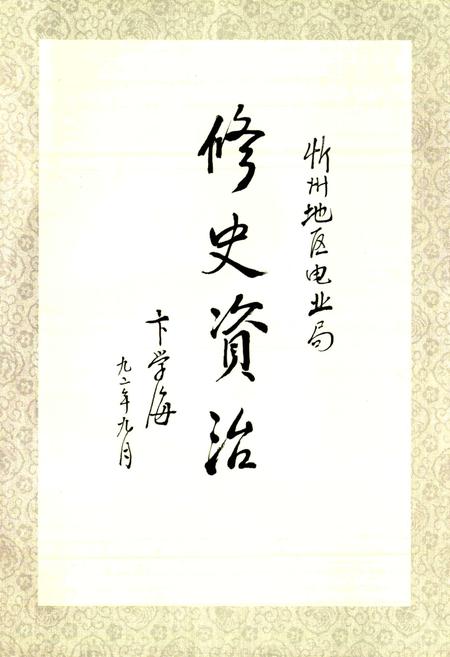 忻州地区电业局
修史資治
卞学海
九二年九月